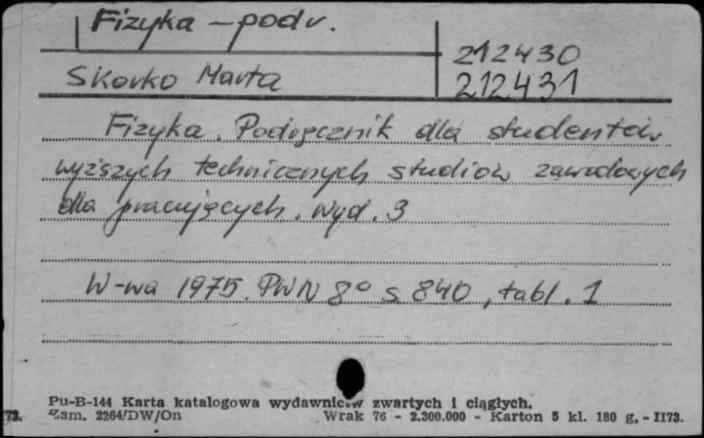 Fizyka - podr.
212430
Skorko Marta
212431
Fizyka. Podręcznik dla studentów
wyższych technicznych studiów zawodowych
dla pracujących. Wyd. 3
W-wa 1975. PWN 8° s 840, tabl. 1
Pu-B-144 Karta katalogowa wydawnictw zwartych i ciągłych.
Zam. 2264/DW/On Wrak 76 - 2.300.000 - Karton 5 kl. 180 g. - II73.